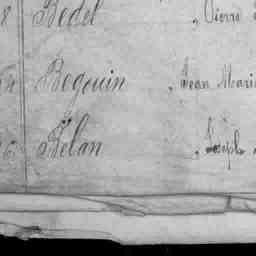 8 Bedel , Pierre
Begouin , Jean Marie
Bélan , Joseph